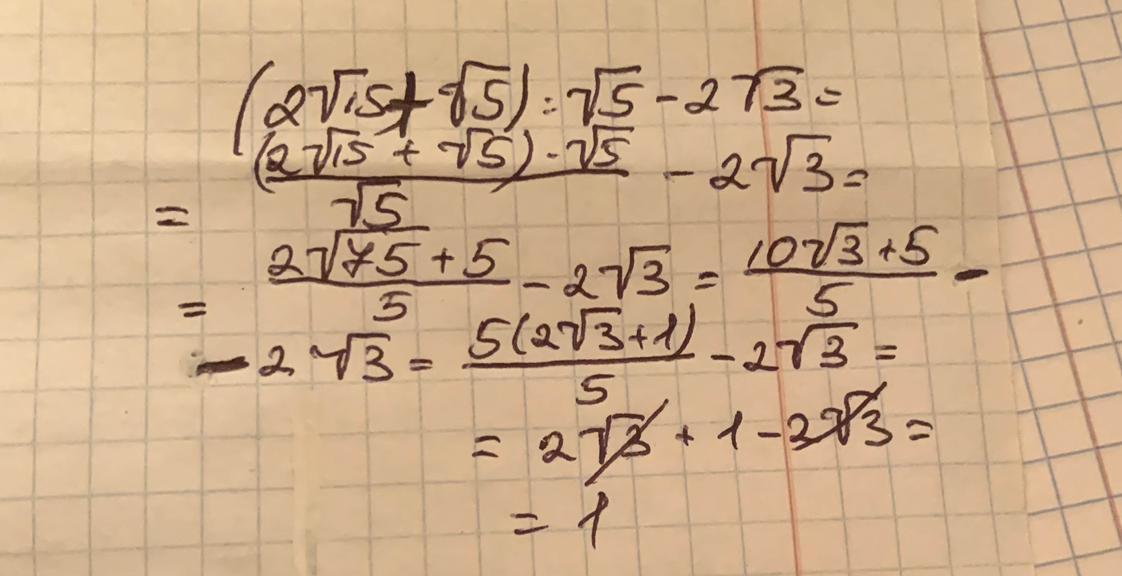 (2√15 + √5) : √5 - 2√3 =
= ((2√15 + √5) · √5)/√5 - 2√3 =
= (2√75 + 5)/5 - 2√3 = (10√3 + 5)/5 -
- 2√3 = (5(2√3 + 1))/5 - 2√3 =
= 2√3 + 1 - 2√3 =
= 1